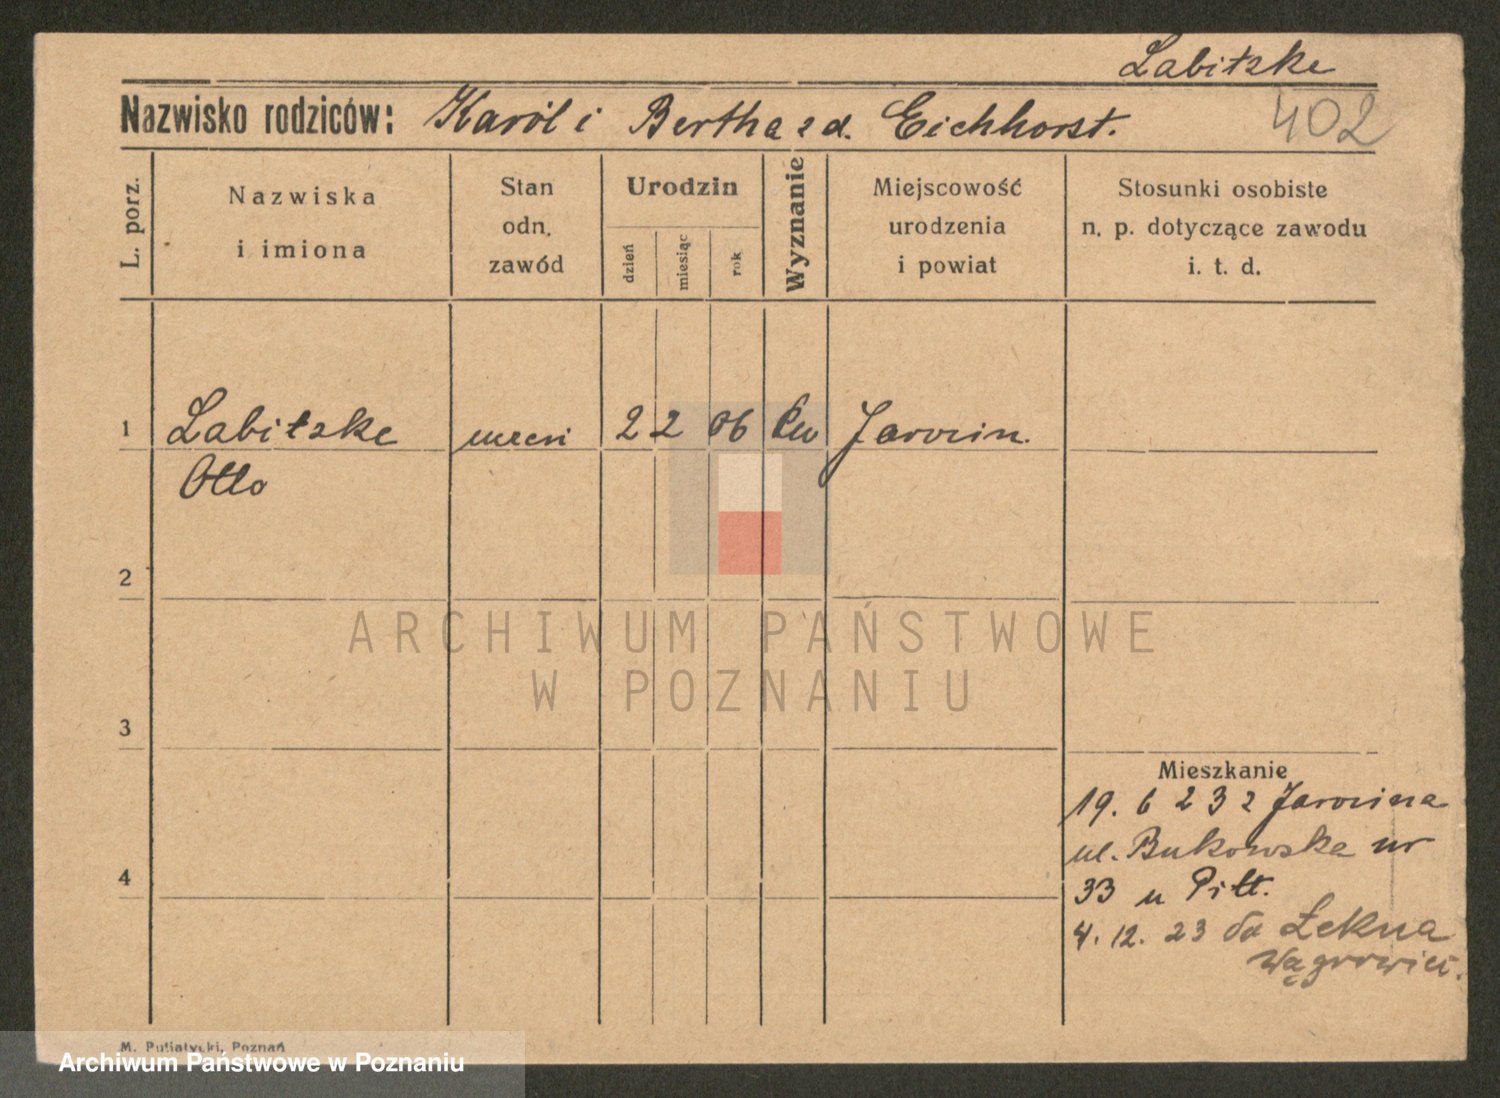 Labitzke
Nazwisko rodziców: Karól i Bertha zd. Eichhorst.
402
L. porz.
Nazwiska
i imiona
Stan
odn.
zawód
Urodzin
dzień
miesiąc
rok
Wyznanie
Miejscowość
urodzenia
i powiat
Stosunki osobiste
n. p. dotyczące zawodu
i. t. d.
1 Labitzke uczeń 2 2 06 Ew Jarocin.
Otto
2
3
4
Mieszkanie
19. 6 23 z Jarocina
ul. Bukowska nr
33 u Pitt.
4. 12. 23 do Łekna
Wągrowiec.
M. Putiatycki, Poznań
ARCHIWUM PAŃSTWOWE
W POZNANIU
Archiwum Państwowe w Poznaniu